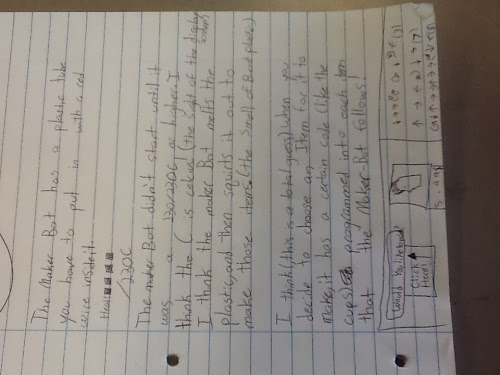 The Maker Bot has a plastic tube
you have to put in with a red
wire inside it.
Heat:
230C
The maker Bot didn't start until it
was a 130/230C or higher. I
think the C is celcius (the sight of the display
screen)
I think the maker Bot melts the
plastic, and then squirts it out to
make those items (the smell of Burnt plastic)
I think (this is a total guess) when you
decide to choose an Item for it to
make, it has a certain code (like the
cups) programmed into each item
that the Maker Bot follows!
Could you
Click
Here!